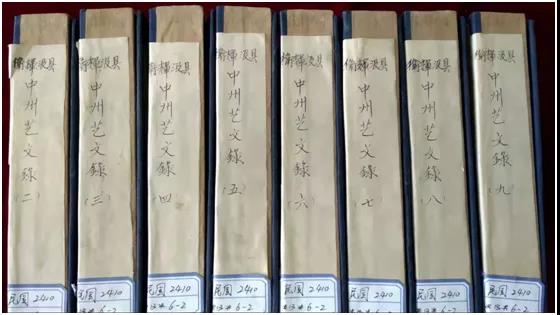 衛輝汲县
中州艺文錄
(二)
民国 2410
6-2
衛輝汲县
中州艺文錄
(三)
民国 2410
6-2
衛輝汲县
中州艺文錄
(四)
民国 2410
6-2
衛輝汲县
中州艺文錄
(五)
民国 2410
6-2
衛輝汲县
中州艺文錄
(六)
民国 2410
6-2
衛輝汲县
中州艺文錄
(七)
民国 2410
6-2
衛輝汲县
中州艺文錄
(八)
民国 2410
6-2
衛輝汲县
中州艺文錄
(九)
民国 2410
6-2